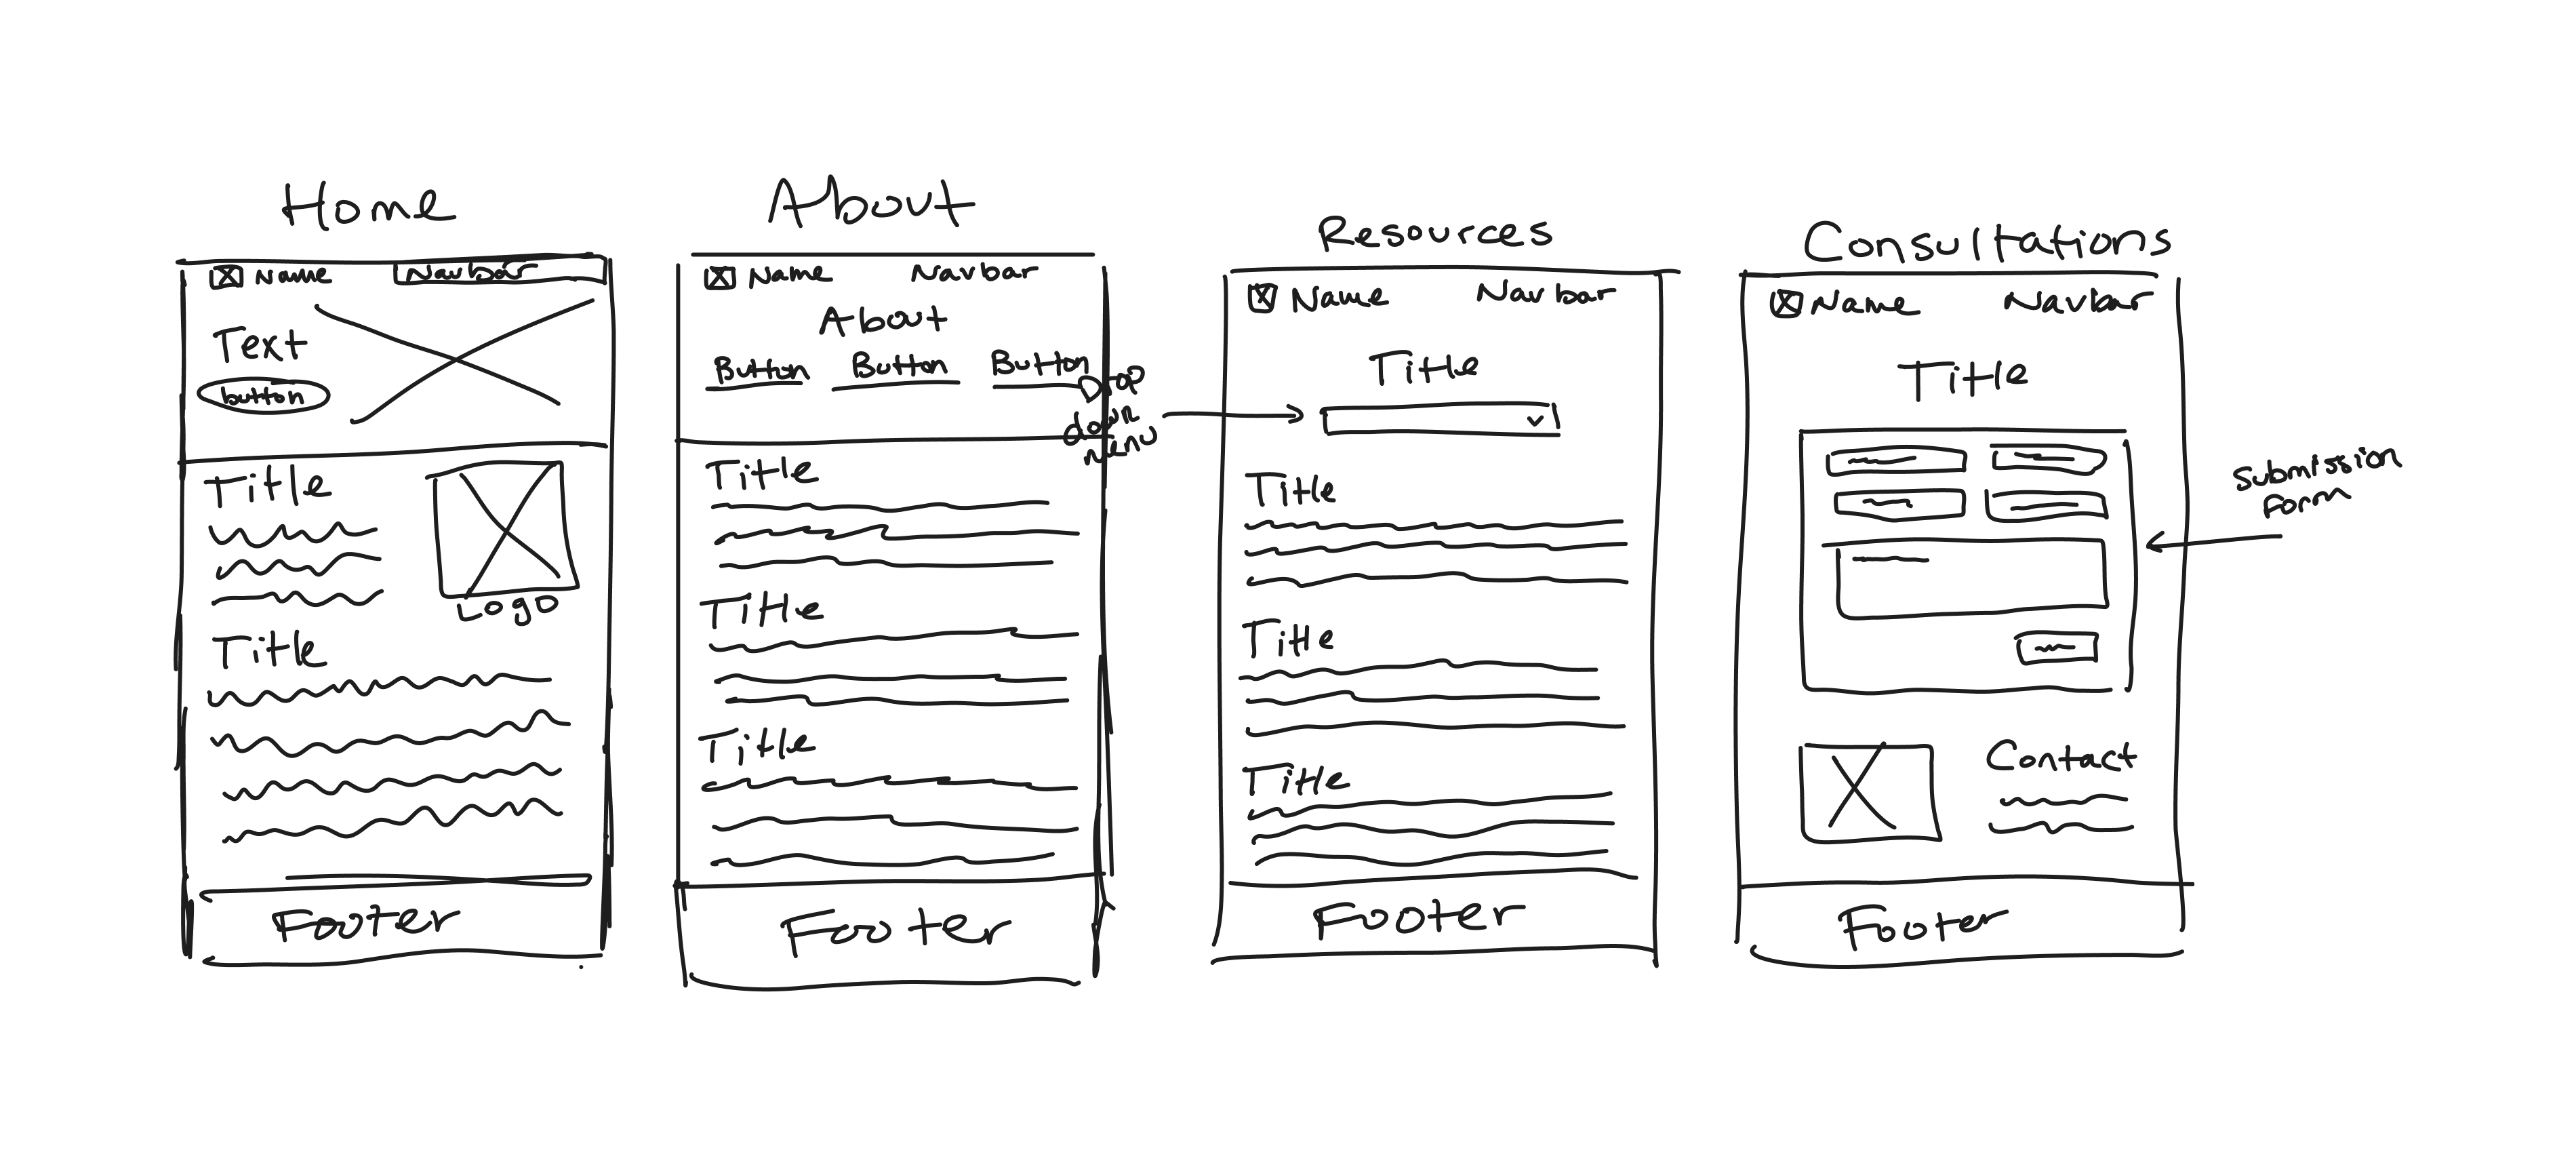 Home
Name
Navbar
Text
button
Title
Logo
Title
Footer
About
Name
Navbar
About
Button
Button
Button
Title
Title
Title
Footer
Drop
down
menu
Resources
Name
Navbar
Title
Title
Title
Title
Footer
Consultations
Name
Navbar
Title
submission
form
Contact
Footer